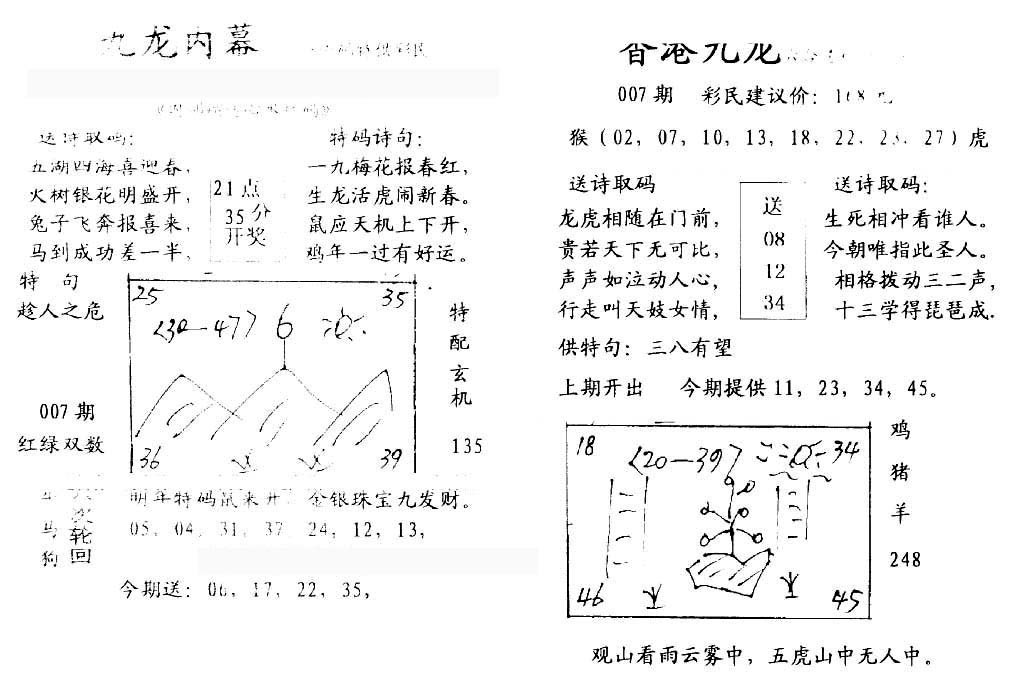 九龙内幕
送诗取码:
五湖四海喜迎春,
火树银花明盛开,
兔子飞奔报喜来,
马到成功差一半,
21点
35分
开奖
特码诗句:
一九梅花报春红,
生龙活虎闹新春。
鼠应天机上下开,
鸡年一过有好运。
特 句
趁人之危
007期
红绿双数
25
35
《30—47》6
36
39
特
配
玄
机
135
明年特码鼠来开 金银珠宝九发财。
马
狗
轮
回
05, 04, 31, 37, 24, 12, 13,
今期送: 06, 17, 22, 35,
香港九龙
007期 彩民建议价: 168元
猴（02, 07, 10, 13, 18, 22, 23, 27）虎
送诗取码
龙虎相随在门前,
贵若天下无可比,
声声如泣动人心,
行走叫天妓女情,
送
08
12
34
送诗取码:
生死相冲看谁人。
今朝唯指此圣人。
相格拨动三二声,
十三学得琵琶成.
供特句: 三八有望
上期开出 今期提供11, 23, 34, 45。
18
《20—39》
34
46
45
鸡
猪
羊
248
观山看雨云雾中, 五虎山中无人中。